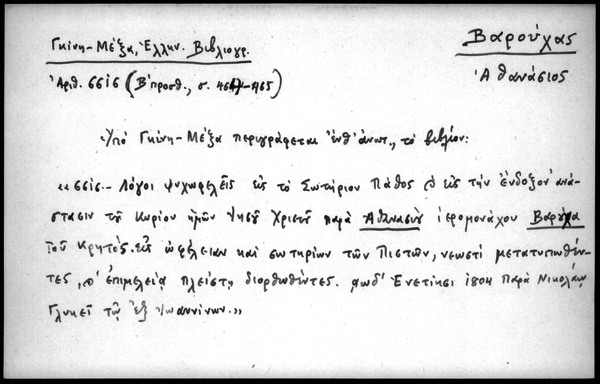 Γκίνη-Μέξα, Ἑλλην. Βιβλιογρ.
Βαρούχας
Ἀριθ. 6616 (Β'προσθ., σ.
Ἀθανάσιος
Ὑπό Γκίνη-Μέξα περιγράφεται ἐνθ' ἀνωτ., τό βιβλίον:
Λόγοι ψυχωφελεῖς εἰς τό Σωτήριον Πάθος εἰς τήν ἔνδοξον ἀνά-
στασιν τοῦ Κυρίου ἡμῶν Ἰησοῦ Χριστοῦ παρά Ἀθανασίου ἱερομονάχου Βαρούχα
τοῦ Κρητός. εἰς ὠφέλειαν καί σωτηρίαν τῶν Πιστῶν, νεωστί μετατυπωθέν-
τες, ἐπιμελείᾳ πλείστῃ διορθωθέντες. αωδ' Ἐνετίησι 1804 Παρά Νικολάῳ
Γλυκεῖ τῷ ἐξ Ἰωαννίνων.»